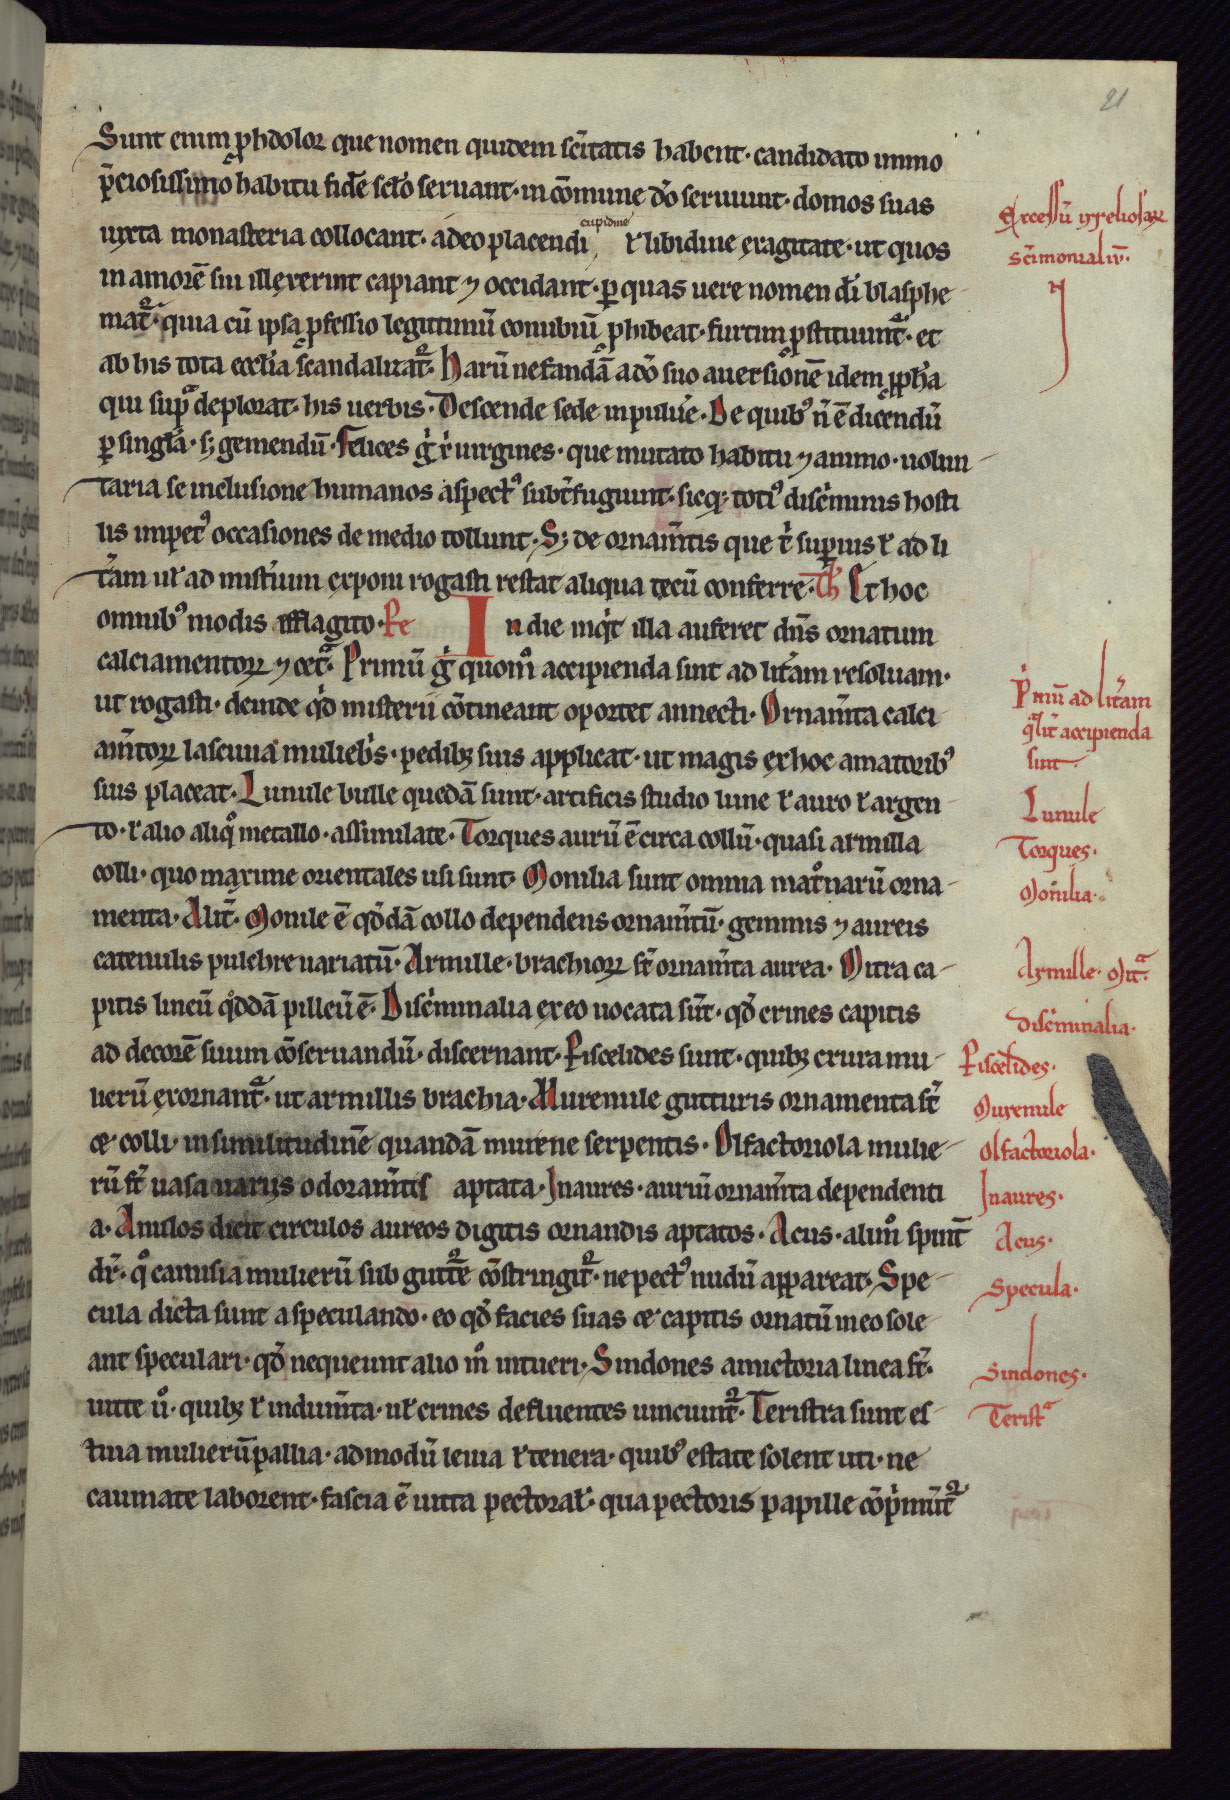 21
Sunt enim ꝓhdolor que nomen quidem sc̄itatis habent · candidato immo
p̄ciosissimo habitu fidē sclō seruant · in cōmune dō seruiunt · domos suas
iuxta monasteria collocant · adeo placendi cupidine ⁊ libidine exagitate · ut quos
in amorē sui illexerint capiant ⁊ occidant · ꝑ quas uere nomen di blasphe
mat᷑ · quia cū ipsa ꝓfessio legitimū conubiū ꝓhibeat · furtim ꝓstituunt᷑ · et
ab his tota eccl̄ia scandalizat᷑ · Harū nefandā a dō suo auersionē idem ꝓph̄a
qui sup̄ deplorat · his uerbis · Descende sede in puluē · De quibꝰ n̄ ē dicendū
ꝑ singl̄a · sꝫ gemendū · Felices g̊ xp̄i uirgines · que mutato habitu ⁊ animo · uolun
taria se inclusione humanos aspectꝰ subt̄fugiunt · sicqꝫ totiꝰ discīminis hosti
lis impetꝰ occasiones de medio tollunt · Sꝫ de ornam̄tis que t̄ superius ł ad li
t̄am uł ad mist̄ium exponi rogasti restat aliqua tecū conferre · Th̄ Et hoc
omnibꝰ modis efflagito · Pe In die inq̇t illa auferet dn̄s ornatum
calciamentoꝝ ⁊ cet᷑ · Primū g̊ quom̊ accipienda sint ad lit̄am resoluam ·
ut rogasti · deinde qd̄ misterii cōtineant oportet annecti · Ornam̄ta calci
am̄toꝝ lasciuia muliebs̄ · pedibꝫ suis applicat · ut magis ex hoc amatoribꝰ
suis placeat · Lunule bulle quedā sunt · artificis studio lune ł auro ł argen
to · ł alio aliq̊ metallo · assimilate · Torques aurū ē circa collū · quasi armilla
colli · quo maxime orientales usi sunt · Monilia sunt omnia mat̊narū orna
menta · Alit̄ · Monile ē qd̄dā collo dependens ornam̄tū · gemmis ⁊ aureis
catenulis pulchre uariatū · Armille · brachioꝝ st̄ ornam̄ta aurea · Mitra ca
pitis lineū q̊ddā pilleū ē · Discīminalia ex eo uocata st̄ · qd̄ crines capitis
ad decorē suum cōseruandū · discernant · Piscelides sunt · quibꝫ crura mu
lierū exornant᷑ · ut armillis brachia · Murenule gutturis ornamenta st̄
& colli · in similitudinē quandā murene serpentis · Olfactoriola mulie
rū st̄ uasa uariis odoram̄tis aptata · Inaures · auriū ornam̄ta dependenti
a · Anulos dicit circulos aureos digitis ornandis aptatos · Acus · alim̊ spint̄
dr̄ · q̊ camisia mulierū sub gutt᷑e cōstringit᷑ · ne pectꝰ nudū appareat · Spe
cula dicta sunt a speculando · eo qd̄ facies suas & capitis ornatū in eo sole
ant speculari · qd̄ nequeunt alio m̊ intueri · Sindones amictoria linea st̄ ·
uitte ů · quibꝫ ł indum̄ta · uł crines defluentes uinciunt᷑ · Teristra sunt es
tiua mulierū pallia · admodū leuia ł tenera · quibꝰ estate solent uti · ne
caumate laborent · fascia ē uitta pectoral̄ · qua pectoris papille cōpmūt᷑
Excessū irreliosaꝝ
sc̄imonialiū ·
P̄mū ad lit̄am
q̄lit̄ accipienda
sint ·
Lunule
Torques ·
Monilia ·
Armille · Mit᷑ ·
discīminalia ·
Piscelides ·
Murenule
Olfactoriola ·
Inaures ·
Acus ·
Specula ·
Sindones ·
Terist᷑